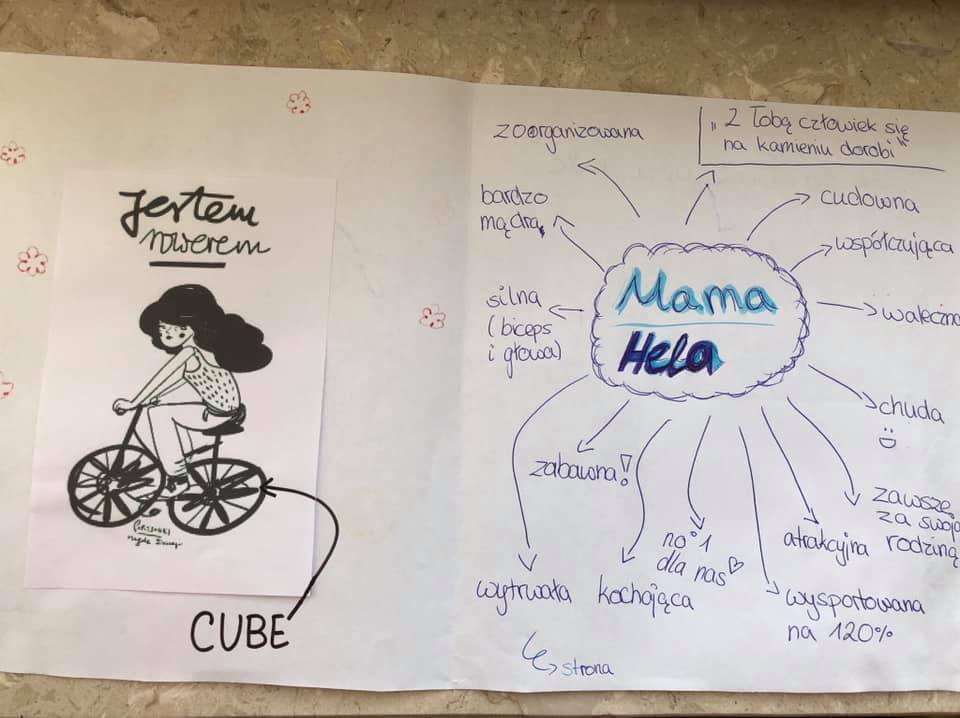 Jestem
rowerem
CUBE
zoorganizowana
„Z Tobą człowiek się
na kamieniu dorobi"
bardzo
mądra
cudowna
współczująca
silna
(biceps
i głowa)
Mama
Hela
waleczna
chuda
zabawna!
zawsze
za swoją
rodziną
no°1
dla nas
atrakcyjna
wytrwała
kochająca
wysportowana
na 120%
strona